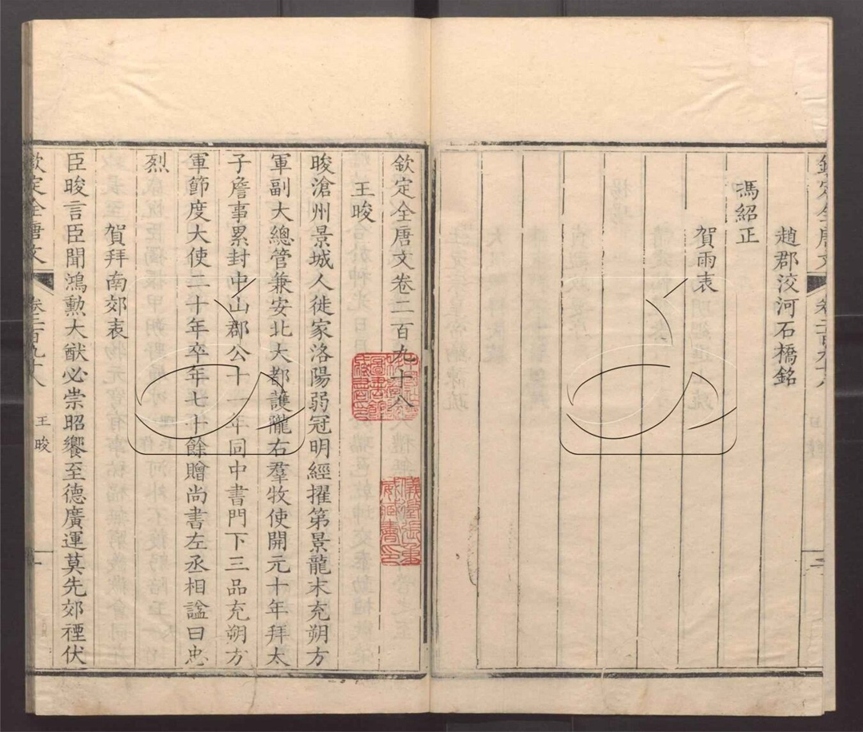 趙郡洨河石橋銘
馮紹正
賀雨表
欽定全唐文卷二百九十八
王晙
晙滄州景城人徙家洛陽弱冠明經擢第景龍末充朔方
軍副大總管兼安北大都護隴右羣牧使開元十年拜太
子詹事累封中山郡公十一年同中書門下三品充朔方
軍節度大使二十年卒年七十餘贈尚書左丞相諡曰忠
烈
賀拜南郊表
臣晙言臣聞鴻勲大猷必崇昭饗至德廣運莫先郊禋伏
欽定全唐文
卷二百九十八
王晙
一